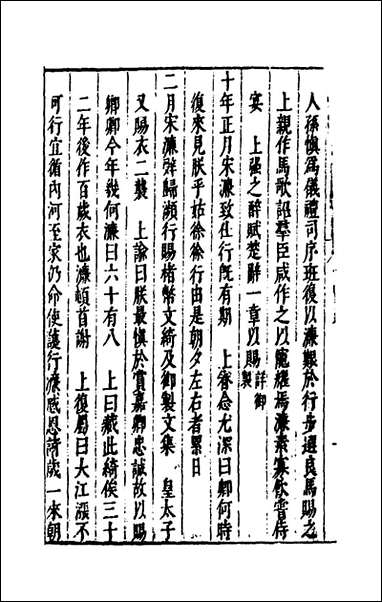 人孫慎爲儀禮司序班後以濂艱於行步選良馬賜之
上親作馬歌詔羣臣咸作之以寵耀焉濂素寡飲嘗侍
宴　上强之醉賦楚辭一章以賜詳御製
十年正月宋濂致仕行旣有期　上眷念尤深曰卿何時
復來見朕乎姑徐徐行由是朝夕左右者累日
二月宋濂辭歸瀕行賜楮幣文綺及御製文集　皇太子
又賜衣二襲　上諭曰朕最慎於賞嘉卿忠誠故以賜
卿卿今年幾何濂曰六十有八　上曰藏此綺俟三十
二年後作百歲衣也濂頓首謝　上復屬曰大江漲不
可行宜循內河至家仍命使護行濂感恩請歲一來朝